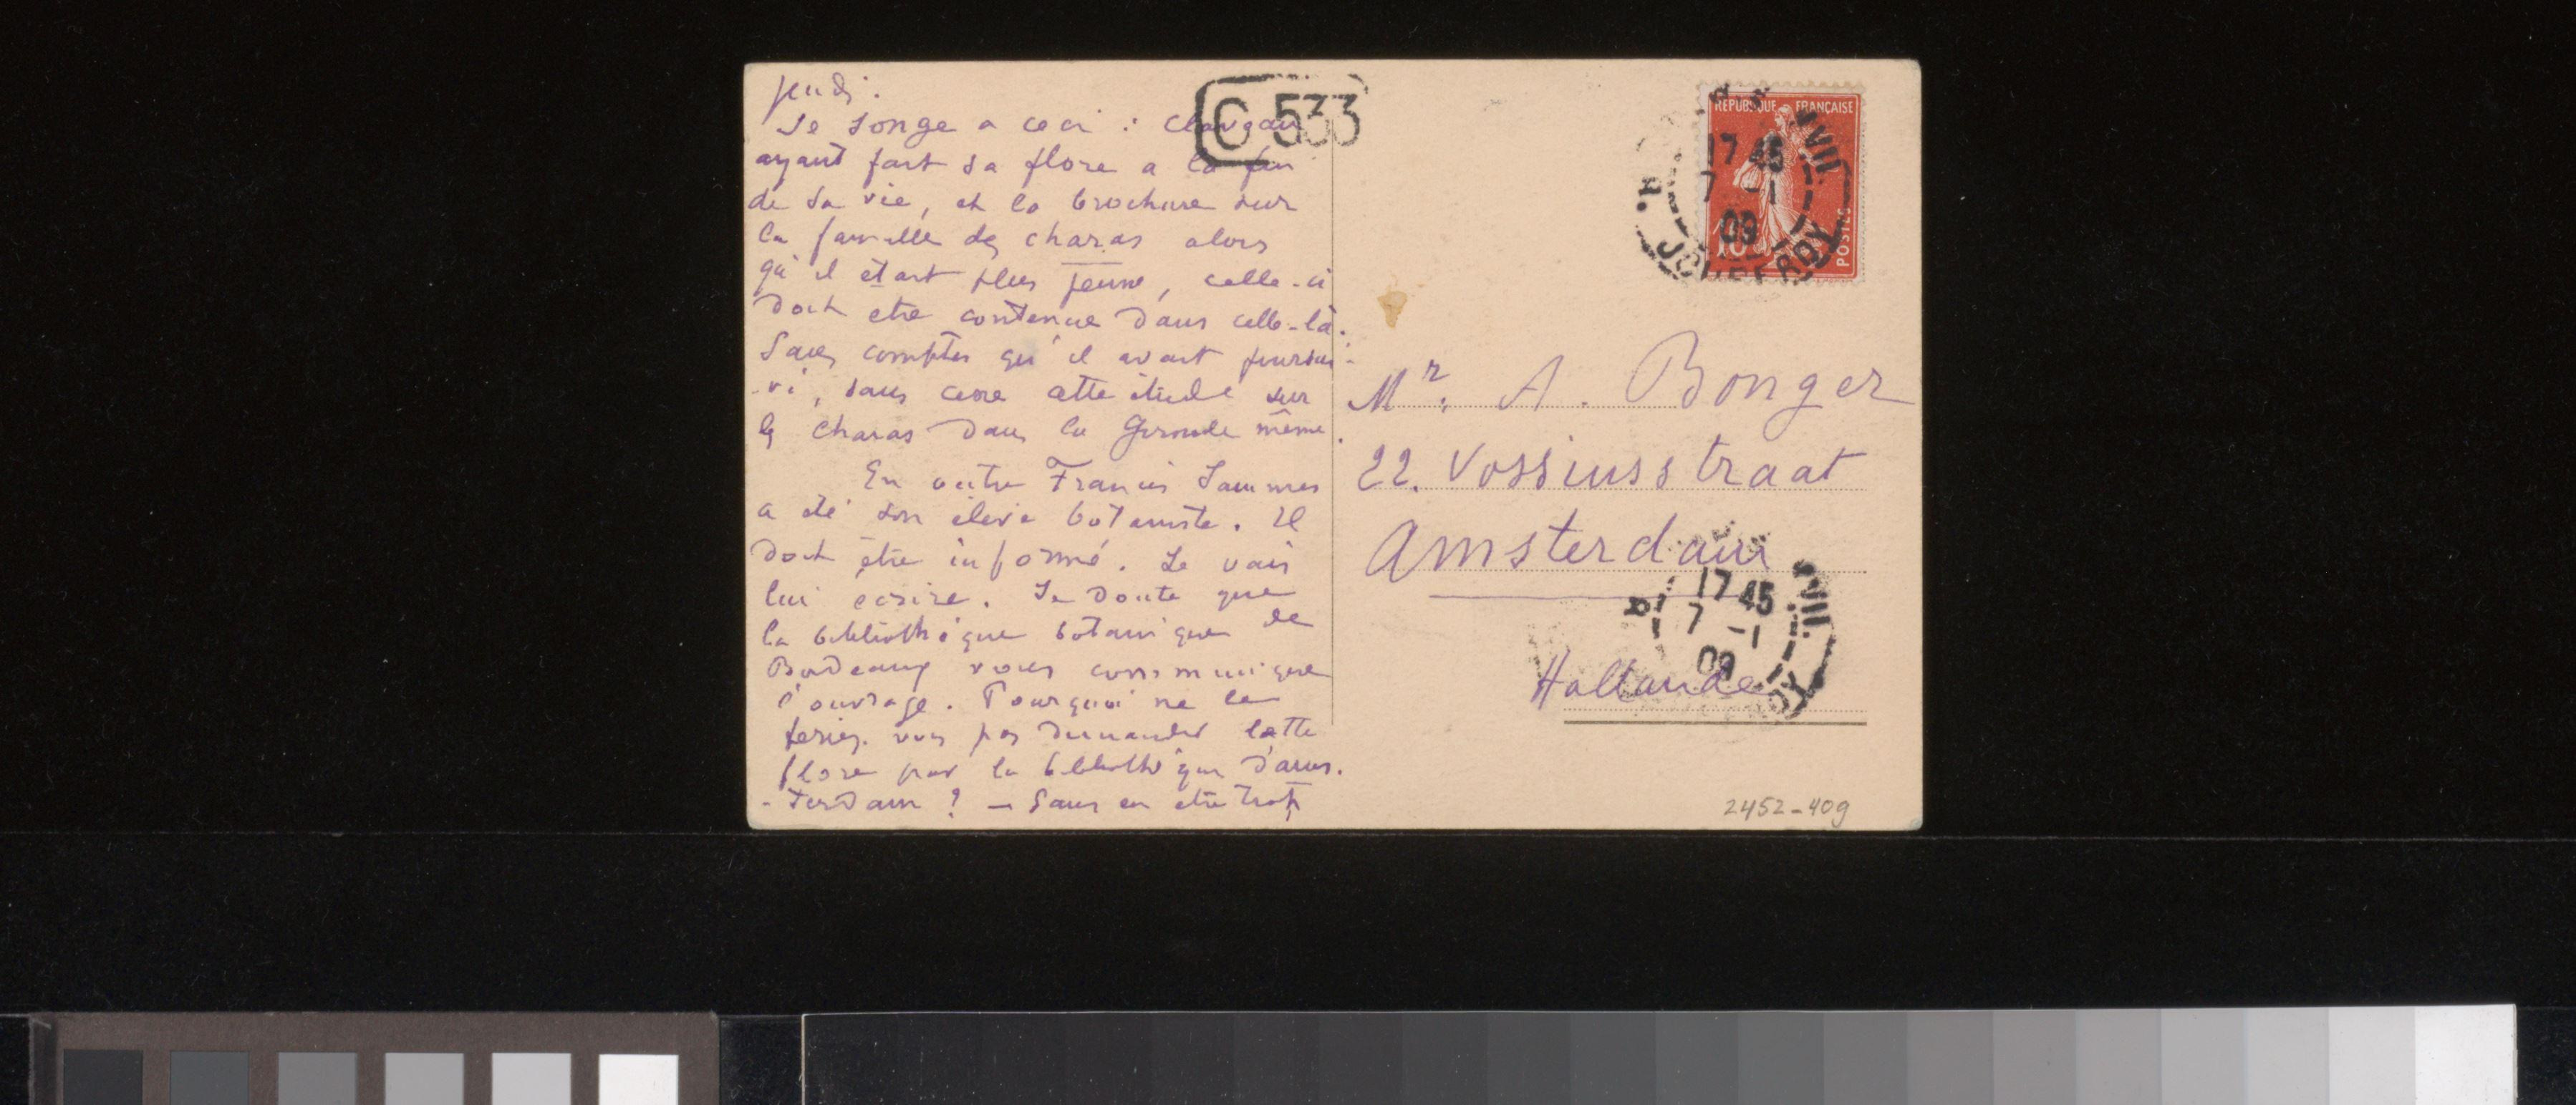 jeudi.
Je songe a ceci : Clavaud
ayant fait sa flore a la fin
de sa vie, et la brochure sur
la famille des charas alors
qu'il etait plus jeune, celle-ci
doit etre contenue dans celle-là.
Sans compter qu'il avait poursui-
-vi, sans cesse cette étude sur
les charas dans la Gironde même.
En outre Francis Jammes
a été son élève botaniste. Il
doit être informé. Je vais
lui ecrire. Je doute que
la bibliothèque botanique de
Bordeaux vous communique
l'ouvrage. Pourquoi ne le
feriez-vous pas demander cette
flore par la bibliothèque d'ams-
-terdam ? — Sans en etre trop
C 533
REPUBLIQUE FRANÇAISE
POSTES
10
17 45
7 -1
09
R. JOUFFROY
XVII
Mr. A. Bonger
22. Vossiusstraat
Amsterdam
Hollande
17 45
7 -1
09
2452-409